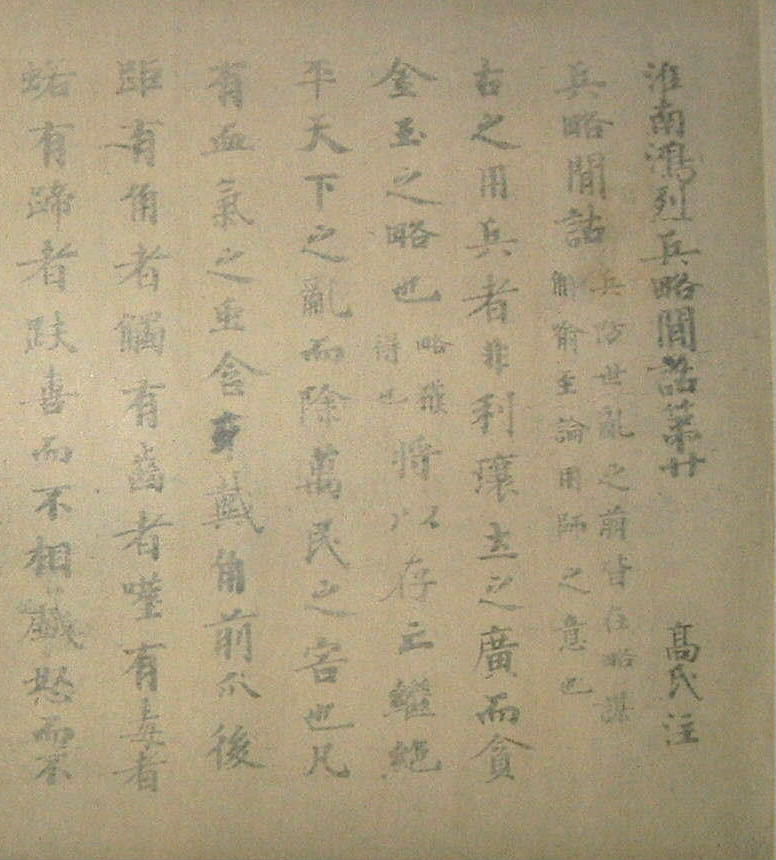 淮南鴻烈兵略間詁第廿　高氏注
兵略間詁
兵防世亂之萌皆在略謀
解喻至論用師之意也
古之用兵者非利壤土之廣而貪
金玉之略也
略獲
得也
將以存亡繼絕
平天下之亂而除萬民之害也凡
有血氣之虫含牙戴角前爪後
距有角者觸有齒者噬有毒者
有蹄者趹喜而不相戲怒而不